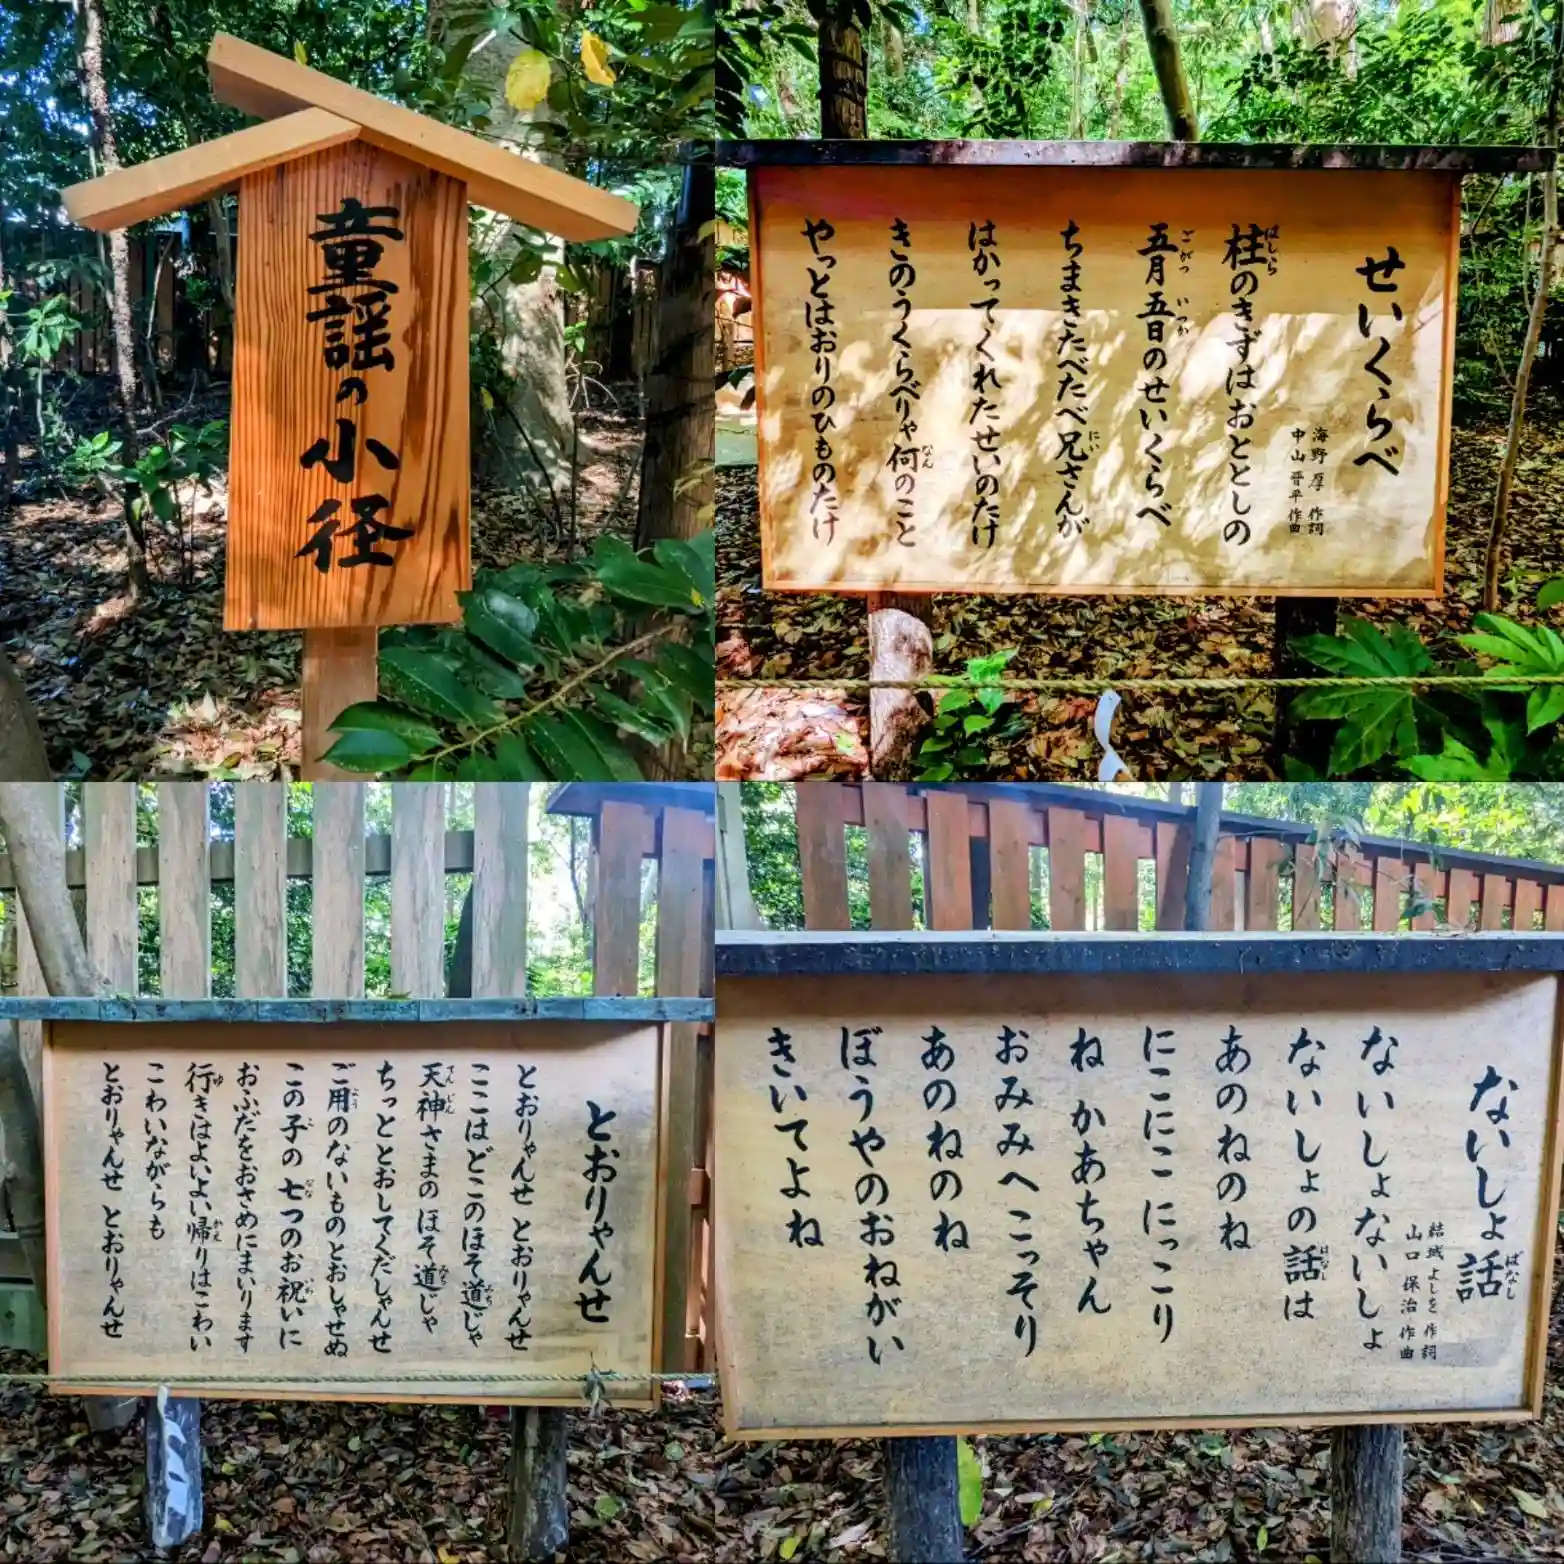 童謡の小径
せいくらべ
海野 厚 作詞
中山 晋平 作曲
柱のきずはおととしの
五月五日のせいくらべ
ちまきたべたべ兄さんが
はかってくれたせいのたけ
きのうくらべりゃ何のこと
やっとはおりのひものたけ
とおりゃんせ
とおりゃんせ とおりゃんせ
ここはどこのほそ道じゃ
天神さまの ほそ道じゃ
ちっととおしてくだしゃんせ
ご用のないものとおしゃせぬ
この子の 七つのお祝いに
おふだをおさめにまいります
行きはよいよい帰りはこわい
こわいながらも
とおりゃんせ とおりゃんせ
ないしょ話
結城 よしを 作詞
山口 保治 作曲
ないしょないしょ
ないしょの話は
あのねのね
にこにこ にっこり
ね かあちゃん
おみみへこっそり
あのねのね
ぼうやのおねがい
きいてよね